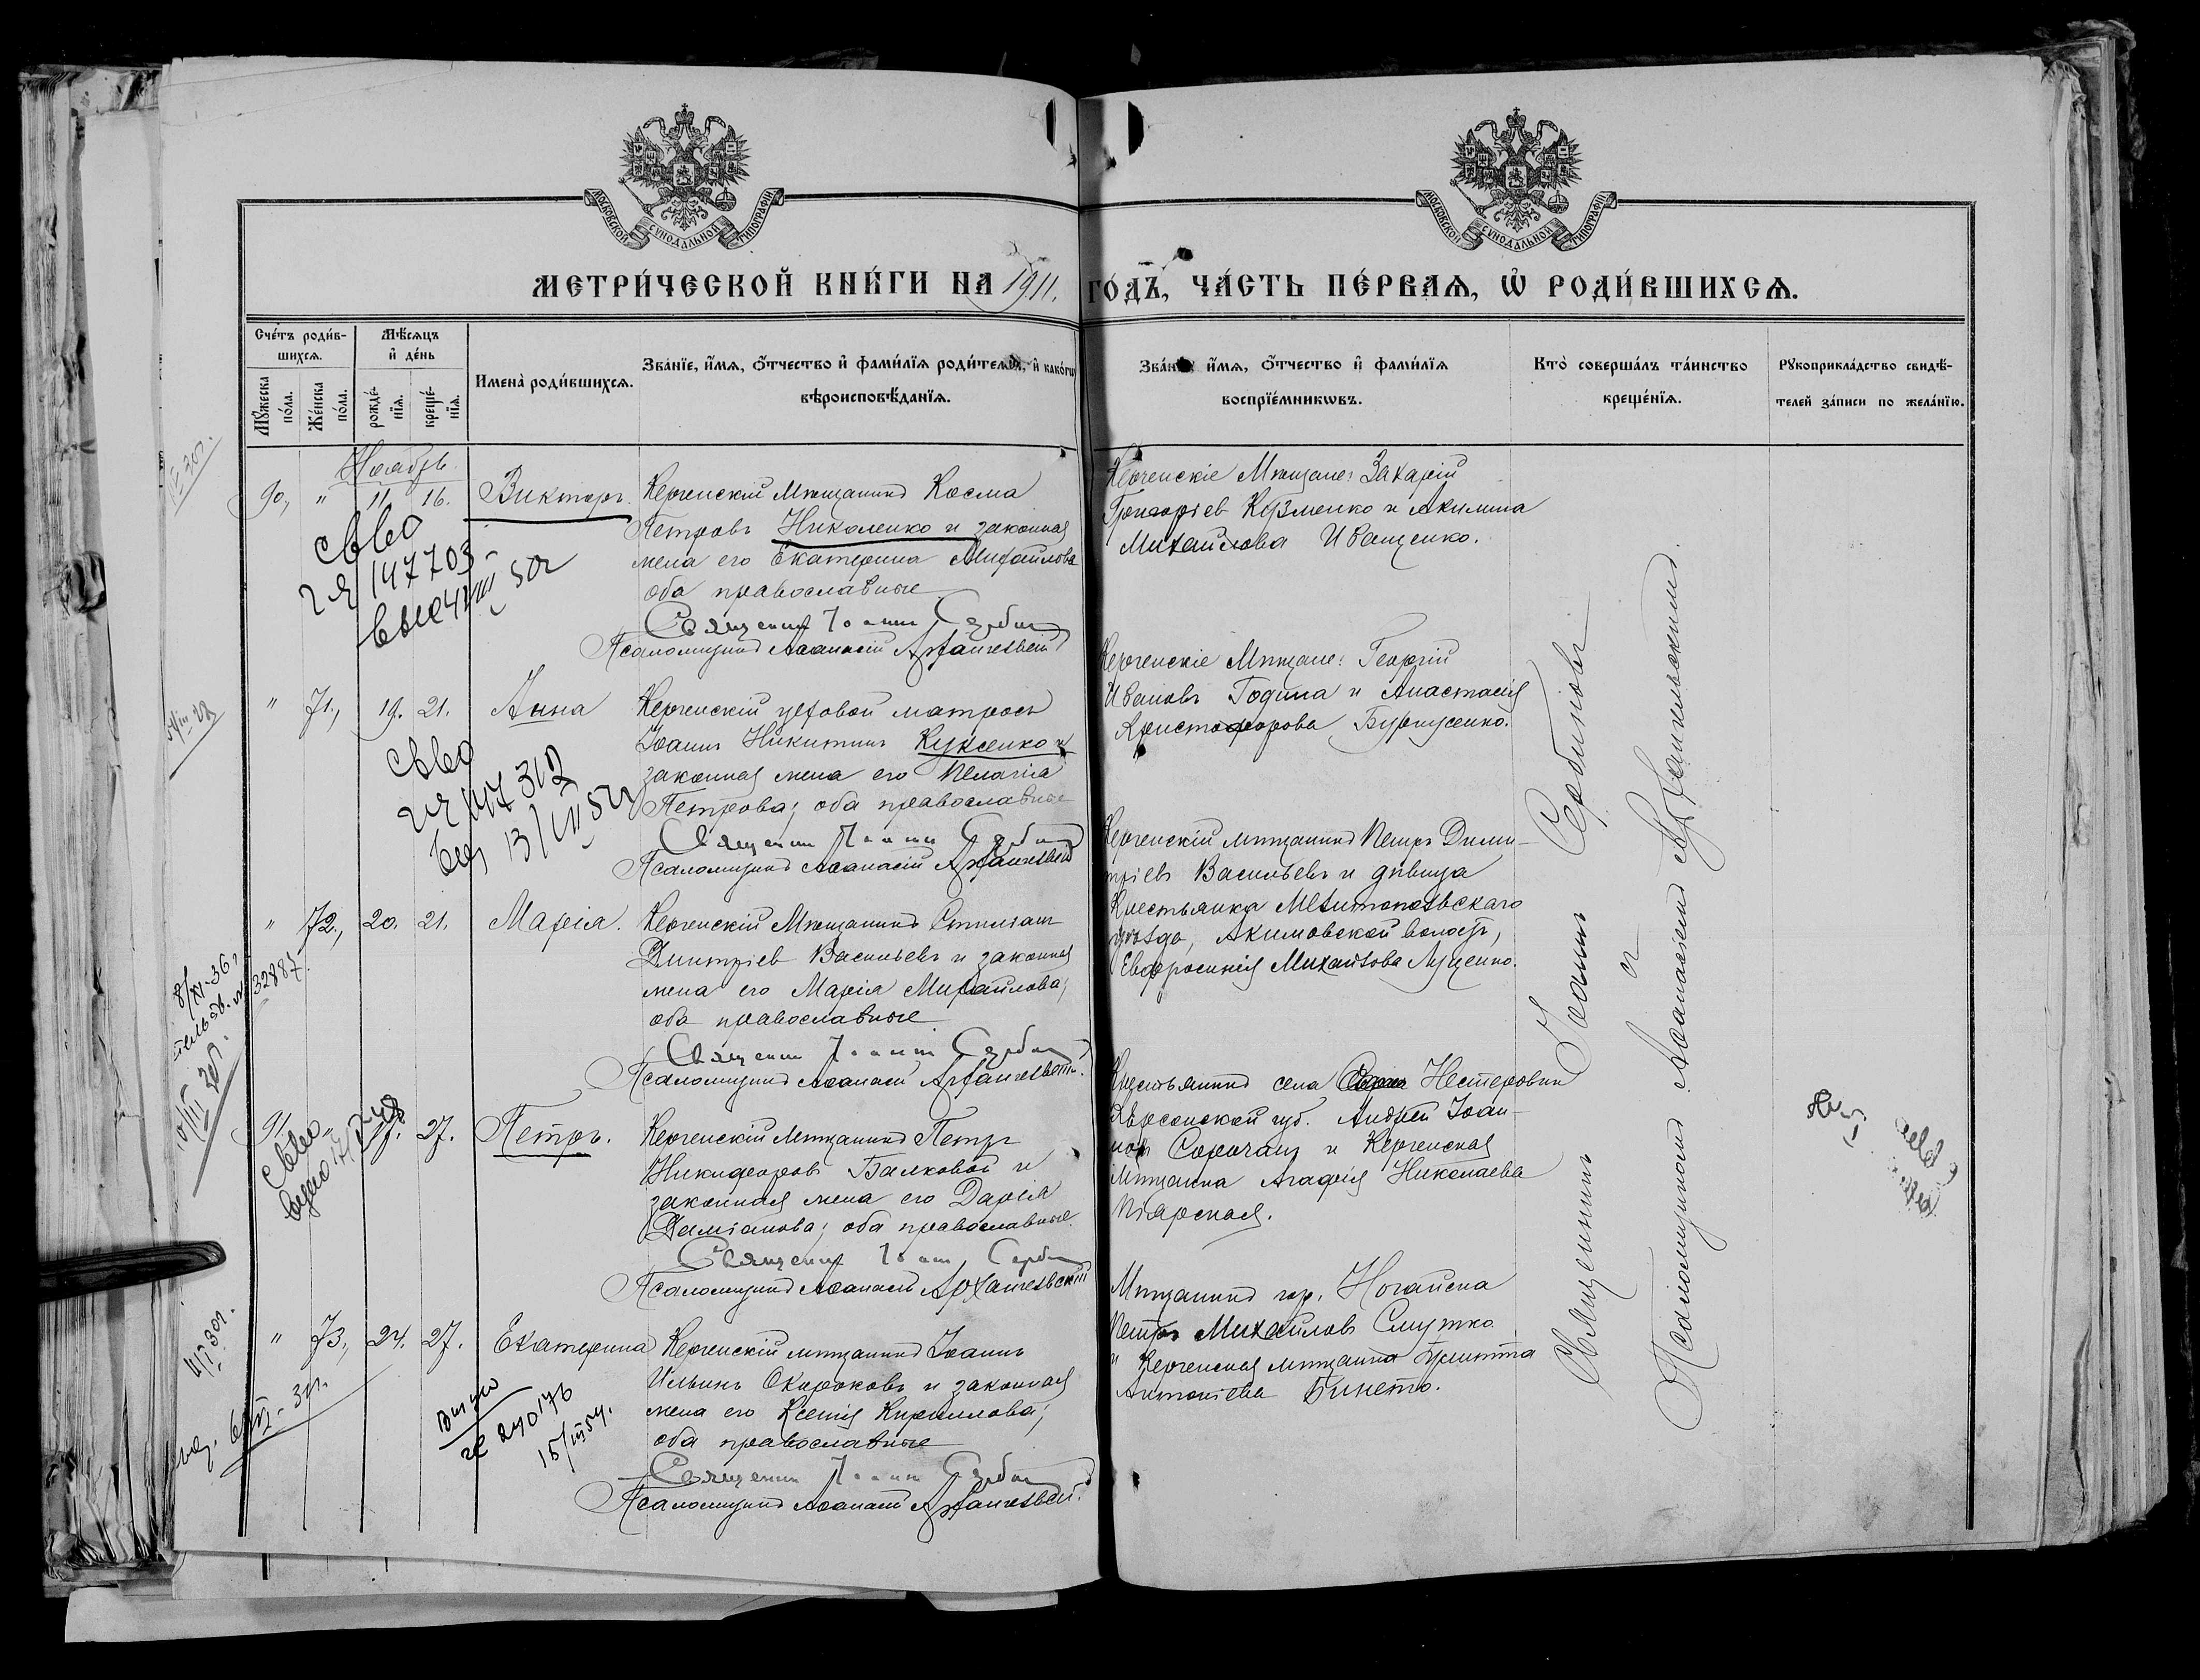 МОСКОВСКОЙ СѴНОДАЛЬНОЙ ТИПОГРАФІИ
МОСКОВСКОЙ СѴНОДАЛЬНОЙ ТИПОГРАФІИ
МЕТРИ́ЧЕСКОЙ КНИ́ГИ НА 1911. ГО́ДЪ, ЧА́СТЬ ПЕ́РВАѦ, Ѽ РОДИ́ВШИХСѦ.
Сче́тъ роди́в-
шихсѧ.
Мꙋ́жеска по́ла.
Же́нска по́ла.
Мѣ́сѧцъ и҆ де́нь
рожде́-
нїѧ.
креще́-
нїѧ.
И҆мена̀ роди́вшихсѧ.
Зва́нїе, и҆́мѧ, ѻ҆́тчество и҆ фами́лїѧ роди́телей, и҆ како́гѡ
вѣроисповѣ́данїѧ.
Зва́нїе, и҆́мѧ, ѻ҆́тчество и҆ фами́лїѧ
воспрїе́мникѡвъ.
Кто̀ соверша́лъ та́инство
креще́нїѧ.
Рꙋкоприкла́дство свидѣ́-
телей за́писи по жела́нїю.
Ноябрь.
90., " 11. 16. Викторъ.
Керченскій Мѣщанинъ Косма
Петровъ Николенко и законная
жена его Екатерина Михайлова
оба православные
Священникъ Іоаннъ Сербиновъ
Псаломщикъ Аѳанасій Архангельскій
Керченскіе Мѣщане: Захарій
Григоріев Кузменко и Акилина
Михайлова Иващенко.
147703
" 71., 19. 21. Анна
Керченскій цеховой матросъ
Іоаннъ Никитинъ Куксенко и
законная жена его Пелагія
Петрова; оба православные
Священникъ Іоаннъ Сербиновъ
Псаломщикъ Аѳанасій Архангельскій
Керченскіе Мѣщане: Георгій
Ивановъ Година и Анастасія
Христофорова
" 72., 20. 21. Марія.
Керченскій Мѣщанинъ Стилианъ
Димитріев Васильевъ и законная
жена его Марія Михайлова;
оба православные
Священникъ Іоаннъ Сербиновъ
Псаломщикъ Аѳанасій Архангельскій.
Керченскій мѣщанинъ Петръ Дими-
тріевъ Васильевъ и дѣвица
Крестьянка Мелитопольскаго
уѣзда, Акимовской волости,
Евфросинія Михайлова Луценко.
32887
91. " 27. Петръ.
Керченскій мѣщанинъ Петръ
Никифоровъ Балковой и
законная жена его Дарія
Даміанова; оба православные.
Священникъ Іоаннъ Сербиновъ
Псаломщикъ Аѳанасій Архангельскій
Крестьянинъ села Нестеровки
Херсонской губ. Андрей Іоан-
новъ Сорочанъ и Керченская
Мѣщанка Агафія Николаева
" 73., 24. 27. Екатерина
Керченскій мѣщанинъ Іоаннъ
Ильинъ Окороковъ и законная
жена его Ксенія Кириллова;
оба православные
Священникъ Іоаннъ Сербиновъ
Псаломщикъ Аѳанасій Архангельскій.
Мѣщанинъ гор. Ногайска
Петръ Михайловъ Смутко
и Керченская мѣщанка
Антоніева Бинетто.
240176
15/III 54.
Священникъ Іоаннъ Сербиновъ
и
Псаломщикомъ Аѳанасіемъ Архангельскимъ.